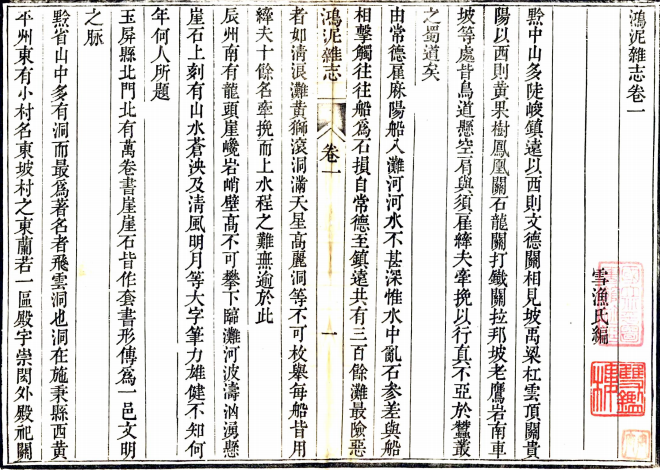 鴻泥雜志卷一
雪漁氏編
黔中山多陡峻鎮遠以西則文德關相見坡禹梁杠雲頂關貴
陽以西則黃果樹鳳凰關石龍關打鐵關拉邦坡老鷹岩南車
坡等處皆鳥道懸空肩輿須雇縴夫牽挽以行真不亞於蠶叢
之蜀道矣
由常德雇麻陽船入灘河河水不甚深惟水中亂石參差與船
相擊觸往往船爲石損自常德至鎮遠共有三百餘灘最險惡
鴻泥雜志
卷一
一
者如清浪灘黃獅滾洞滿天星高麗洞等不可枚舉每船皆用
縴夫十餘名牽挽而上水程之難無逾於此
辰州南有龍頭崖巉岩峭壁高不可攀下臨灘河波濤洶湧懸
崖石上刻有山水蒼泱及清風明月等大字筆力雄健不知何
年何人所題
玉屏縣北門北有萬卷書崖崖石皆作套書形傳爲一邑文明
之脉
黔省山中多有洞而最爲著名者飛雲洞也洞在施秉縣西黃
平州東有小村名東坡村之東蘭若一區殿宇崇閎外殿祀關